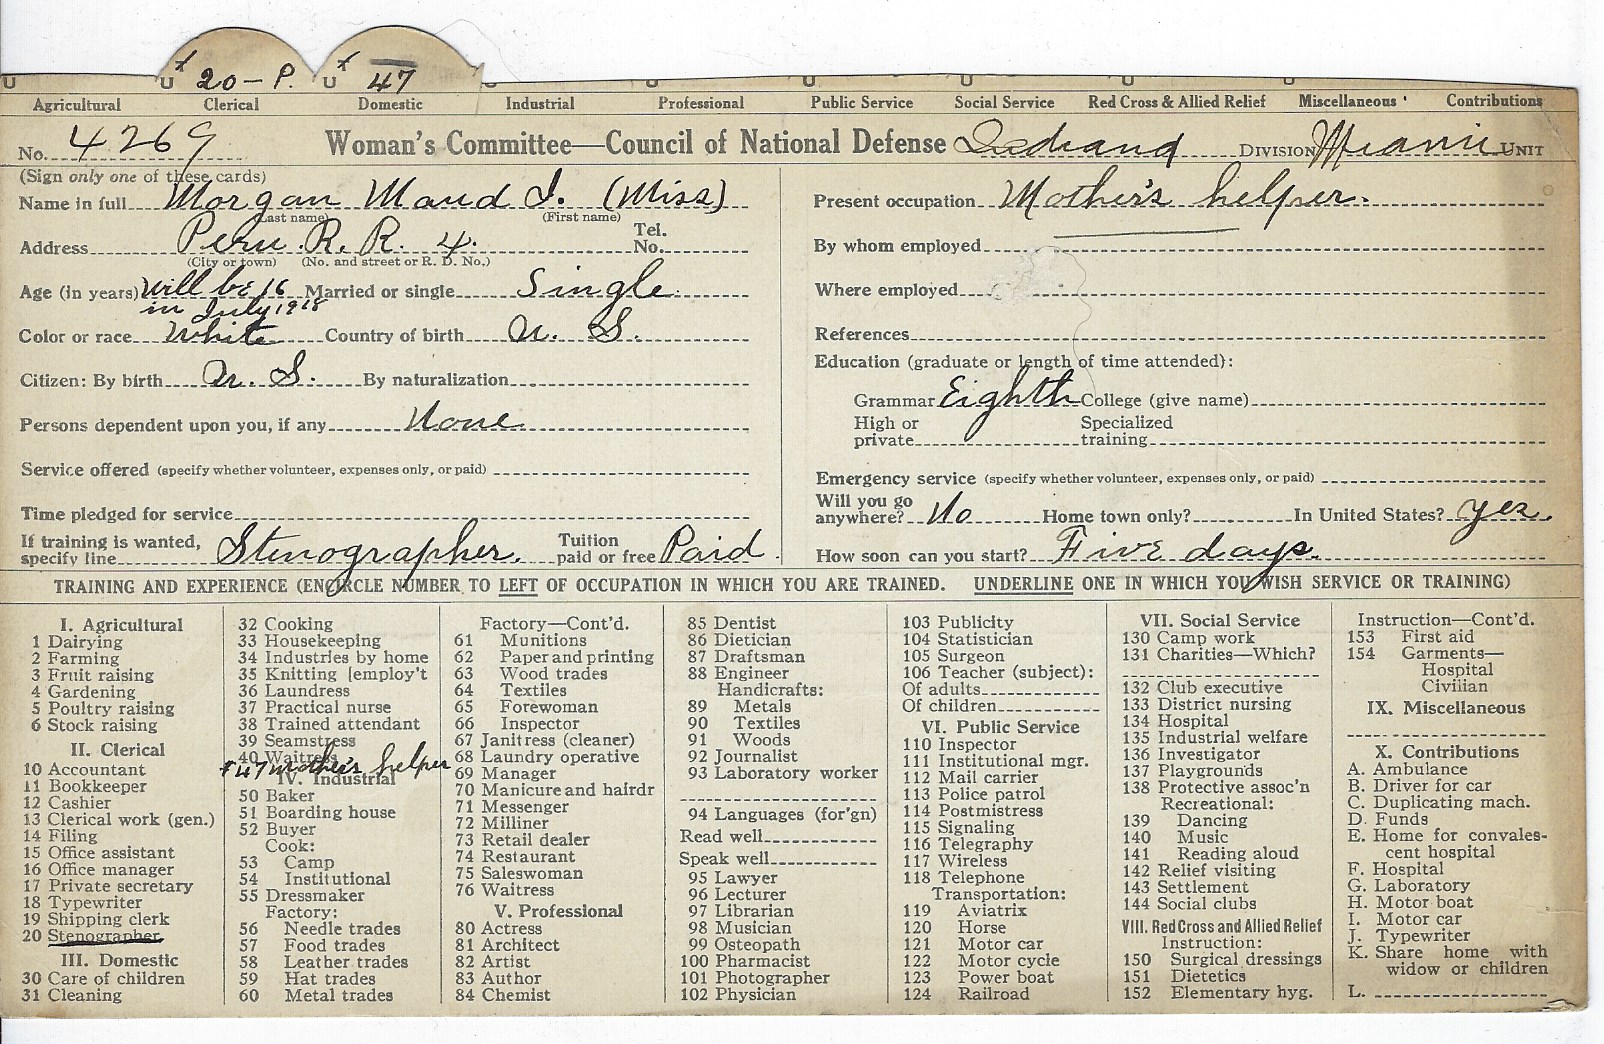 U x 20 - P. U x 47
Agricultural Clerical Domestic Industrial Professional Public Service Social Service Red Cross & Allied Relief Miscellaneous Contributions
No. 4269 Woman's Committee—Council of National Defense Indiana DIVISION Miami UNIT
(Sign only one of these cards)
Name in full Morgan Maud I. (Miss)
(Last name) (First name)
Address Peru R. R. 4. Tel. No.
(City or town) (No. and street or R. D. No.)
Age (in years) will be 16 Married or single Single
in July 1918
Color or race White Country of birth U. S.
Citizen: By birth U. S. By naturalization
Persons dependent upon you, if any None
Service offered (specify whether volunteer, expenses only, or paid)
Time pledged for service
If training is wanted, specify line Stenographer. Tuition paid or free Paid.
Present occupation Mother's helper.
By whom employed
Where employed
References
Education (graduate or length of time attended):
Grammar Eighth College (give name)
High or private Specialized training
Emergency service (specify whether volunteer, expenses only, or paid)
Will you go anywhere? No Home town only? In United States? yes.
How soon can you start? Five days.
TRAINING AND EXPERIENCE (ENCIRCLE NUMBER TO LEFT OF OCCUPATION IN WHICH YOU ARE TRAINED. UNDERLINE ONE IN WHICH YOU WISH SERVICE OR TRAINING)
I. Agricultural
1 Dairying
2 Farming
3 Fruit raising
4 Gardening
5 Poultry raising
6 Stock raising
II. Clerical
10 Accountant
11 Bookkeeper
12 Cashier
13 Clerical work (gen.)
14 Filing
15 Office assistant
16 Office manager
17 Private secretary
18 Typewriter
19 Shipping clerk
20 Stenographer
III. Domestic
30 Care of children
31 Cleaning
32 Cooking
33 Housekeeping
34 Industries by home
35 Knitting [employ't
36 Laundress
37 Practical nurse
38 Trained attendant
39 Seamstress
40 Waitress
47 mother's helper
IV. Industrial
50 Baker
51 Boarding house
52 Buyer
Cook:
53 Camp
54 Institutional
55 Dressmaker
Factory:
56 Needle trades
57 Food trades
58 Leather trades
59 Hat trades
60 Metal trades
Factory—Cont'd.
61 Munitions
62 Paper and printing
63 Wood trades
64 Textiles
65 Forewoman
66 Inspector
67 Janitress (cleaner)
68 Laundry operative
69 Manager
70 Manicure and hairdr
71 Messenger
72 Milliner
73 Retail dealer
74 Restaurant
75 Saleswoman
76 Waitress
V. Professional
80 Actress
81 Architect
82 Artist
83 Author
84 Chemist
85 Dentist
86 Dietician
87 Draftsman
88 Engineer
Handicrafts:
89 Metals
90 Textiles
91 Woods
92 Journalist
93 Laboratory worker
94 Languages (for'gn)
Read well
Speak well
95 Lawyer
96 Lecturer
97 Librarian
98 Musician
99 Osteopath
100 Pharmacist
101 Photographer
102 Physician
103 Publicity
104 Statistician
105 Surgeon
106 Teacher (subject):
Of adults
Of children
VI. Public Service
110 Inspector
111 Institutional mgr.
112 Mail carrier
113 Police patrol
114 Postmistress
115 Signaling
116 Telegraphy
117 Wireless
118 Telephone
Transportation:
119 Aviatrix
120 Horse
121 Motor car
122 Motor cycle
123 Power boat
124 Railroad
VII. Social Service
130 Camp work
131 Charities—Which?
132 Club executive
133 District nursing
134 Hospital
135 Industrial welfare
136 Investigator
137 Playgrounds
138 Protective assoc'n
Recreational:
139 Dancing
140 Music
141 Reading aloud
142 Relief visiting
143 Settlement
144 Social clubs
VIII. Red Cross and Allied Relief
Instruction:
150 Surgical dressings
151 Dietetics
152 Elementary hyg.
Instruction—Cont'd.
153 First aid
154 Garments—
Hospital
Civilian
IX. Miscellaneous
X. Contributions
A. Ambulance
B. Driver for car
C. Duplicating mach.
D. Funds
E. Home for convales-
cent hospital
F. Hospital
G. Laboratory
H. Motor boat
I. Motor car
J. Typewriter
K. Share home with
widow or children
L.